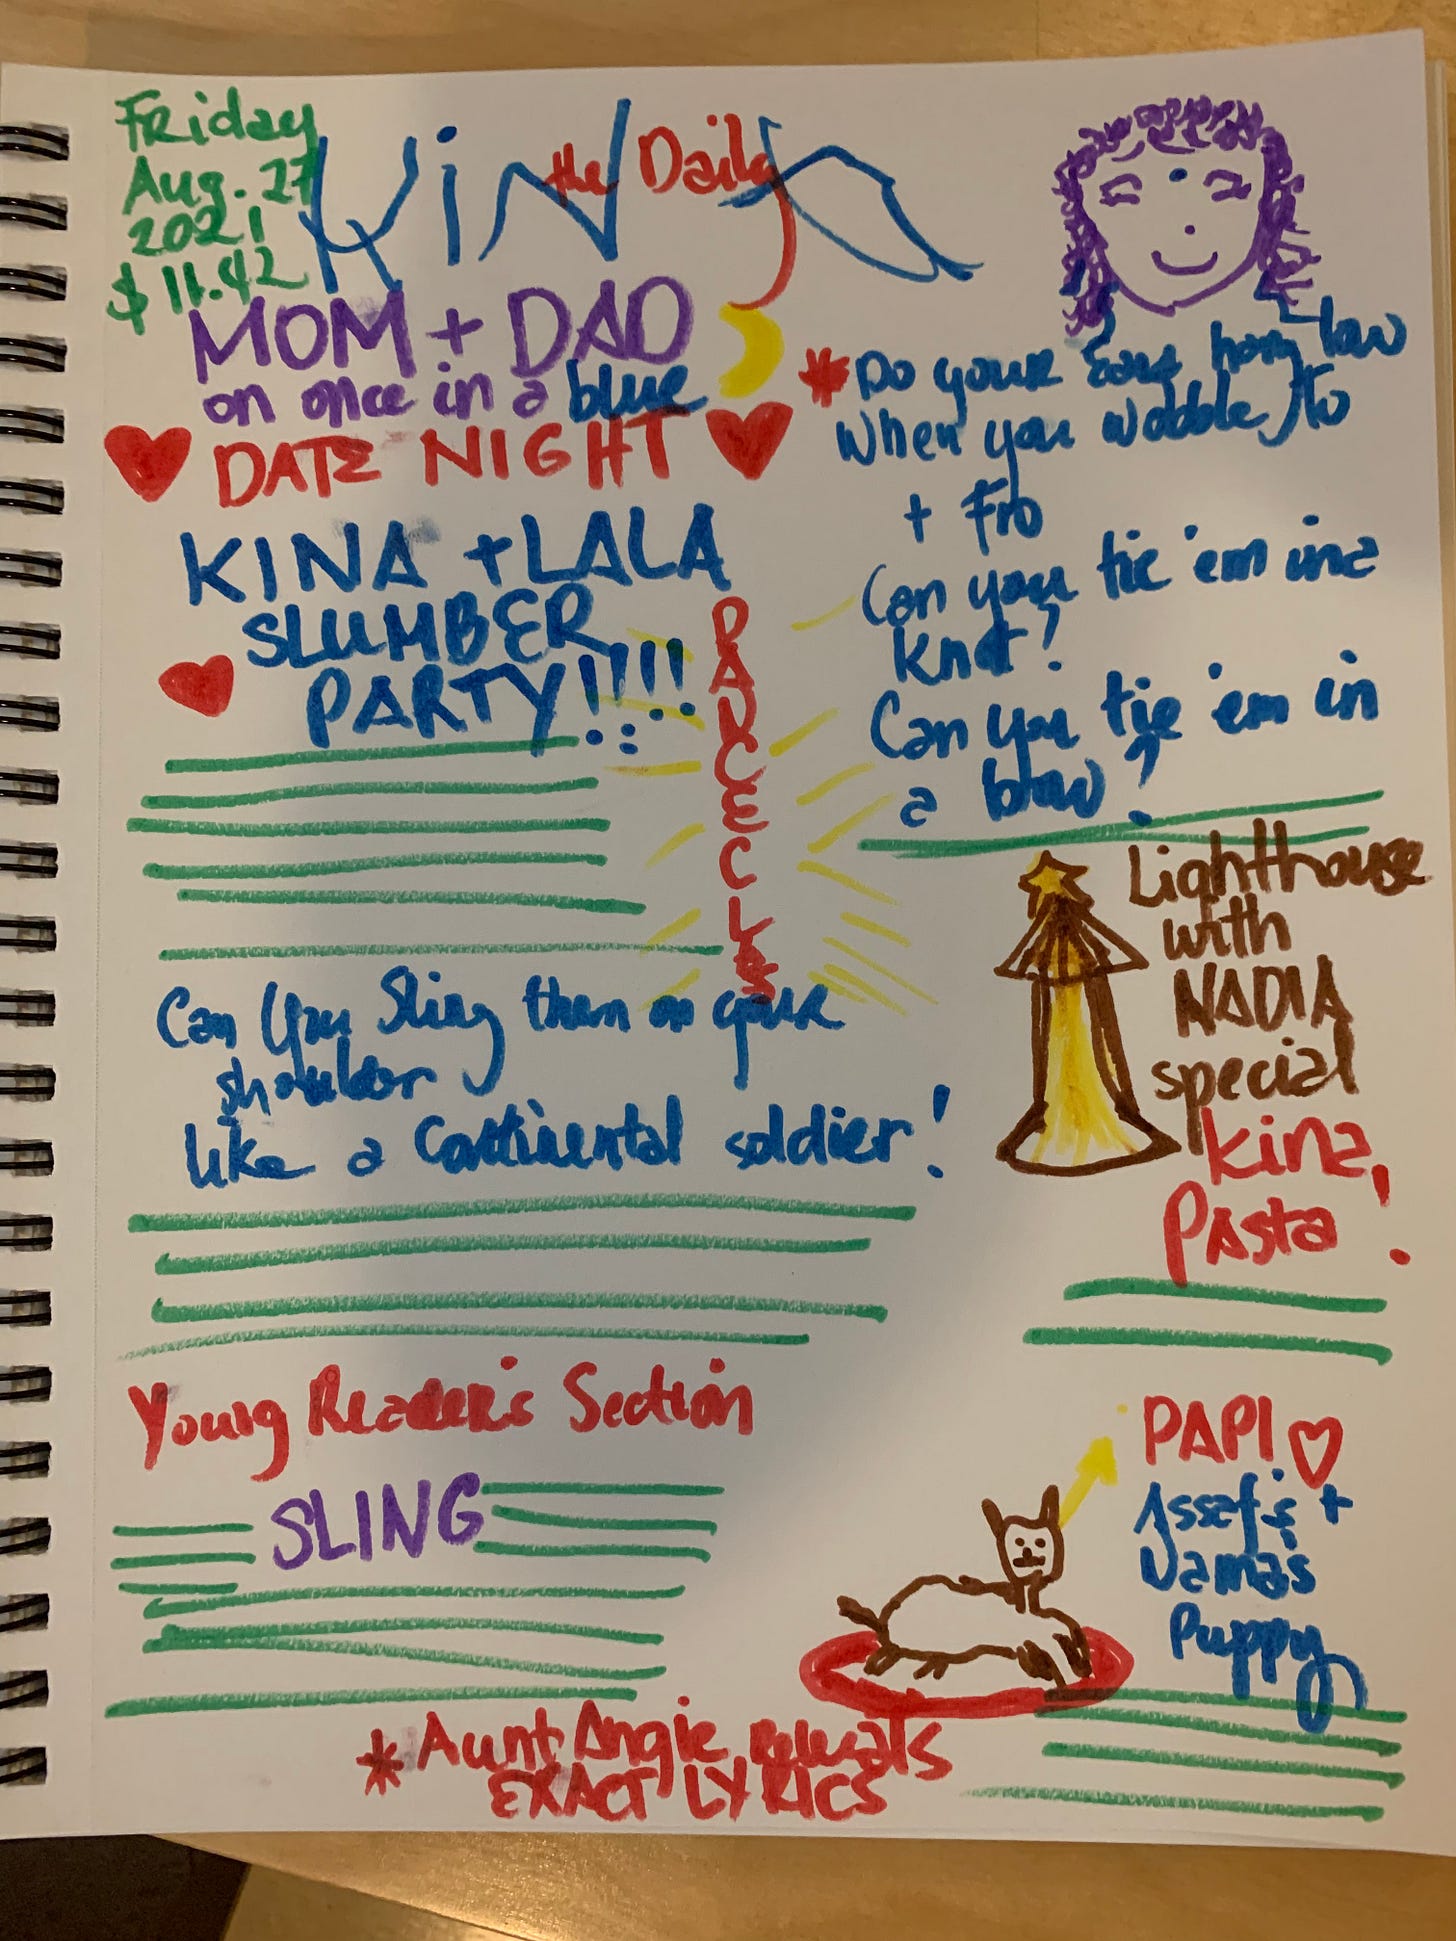 Friday
Aug. 27
2021
$ 11.42
the Daily
KiNA
MOM + DAD
on once in a blue
DATE NIGHT
KINA + LALA
SLUMBER
PARTY!!!!!
* Do your Ears hang low
When you wobble to
+ Fro
Can you tie 'em in a
knot?
Can you tie 'em in
a bow?
Can you Sling them on your
shoulder
like a Continental soldier!
Lighthouse
with
NADIA
special
Kina,
Pasta!
Young Reader's Section
SLING
PAPI
Assaf's +
Nama's
Puppy
* Aunt Angie Reveals
EXACT LYRICS